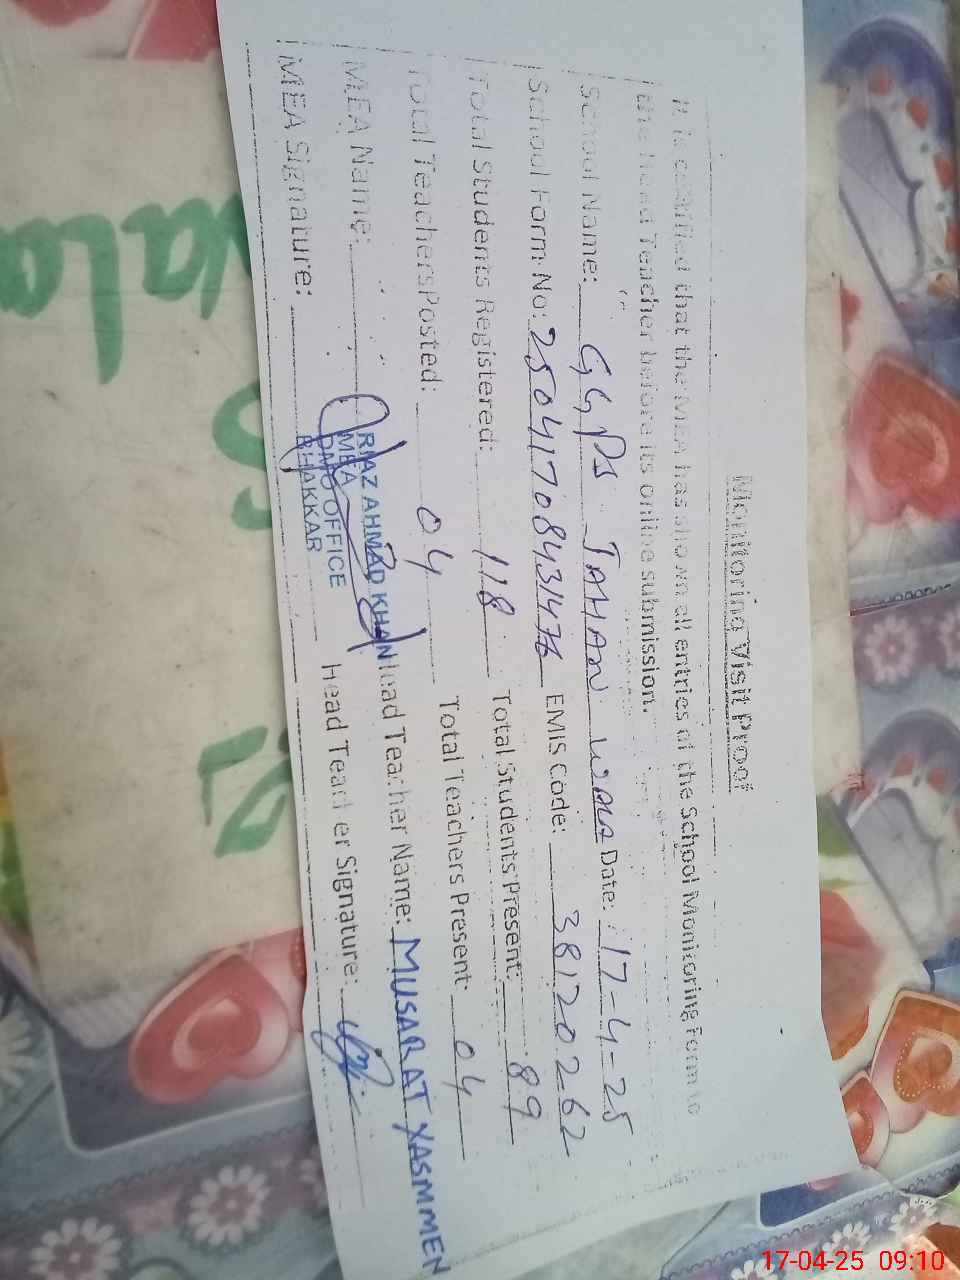 Monitoring Visit Proof
It is certified that the MEA has shown all entries of the School Monitoring Form to
the Head Teacher before its online submission.
School Name: GGPS JAHAN WALA Date: 17-4-25
School Form No: EMIS Code: 38120262
Total Students Registered: 118 Total Students Present: 89
Total Teachers Posted: 04 Total Teachers Present: 04
MEA Name: RIAZ AHMAD KHAN Head Teacher Name: MUSARAT YASMMEN
MEA
DMO OFFICE
BHAKKAR
MEA Signature: Head Teacher Signature:
17-04-25 09:10